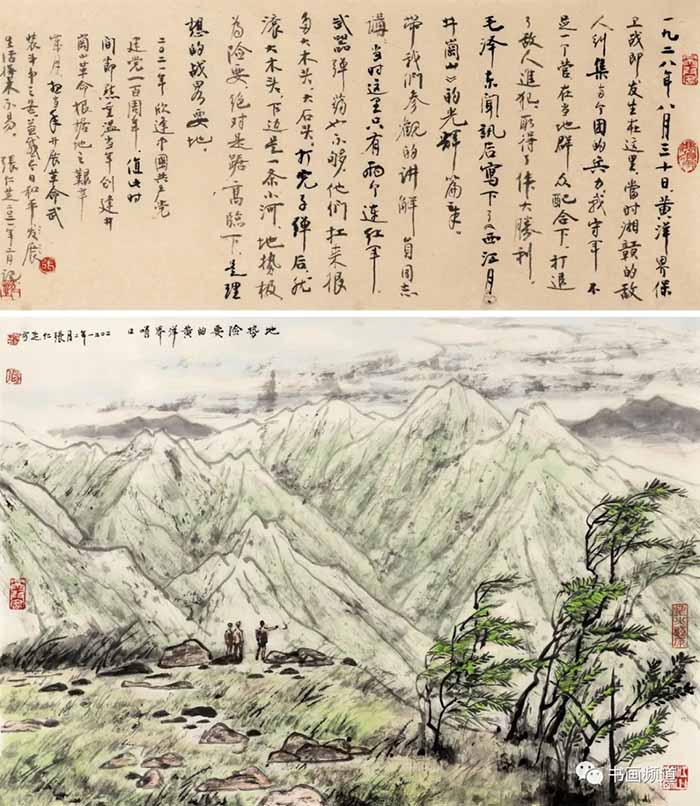 一九二八年八月三十日，黄洋界保
卫战即发生在这里，当时湘赣的敌
人纠集与个团的兵力，我守军不
足一个营在当地群众配合下，打退
了敌人进犯，取得了伟大胜利。
毛泽东闻讯后写下了《西江月·
井冈山》的光辉篇章。
带我们参观的讲解员同志
讲：当时这里只有两个连红军，
武器弹药也不够，他们扛来很
多大木头、大石头，打完子弹后就
滚大木头，下边是一条小河，地势极
为险要，绝对是居高临下，是理
想的战略要地。
二〇二一年欣逢中国共产党
建党一百周年，值此时
间节点重温当年创建井
冈山革命根据地之艰辛
岁月，
开展革命武
装斗争之
今日和平发展
生活得来不易。张仁芝二〇二一年二月记
地势险要的黄洋界哨口
二〇二一年二月张仁芝写
书画频道